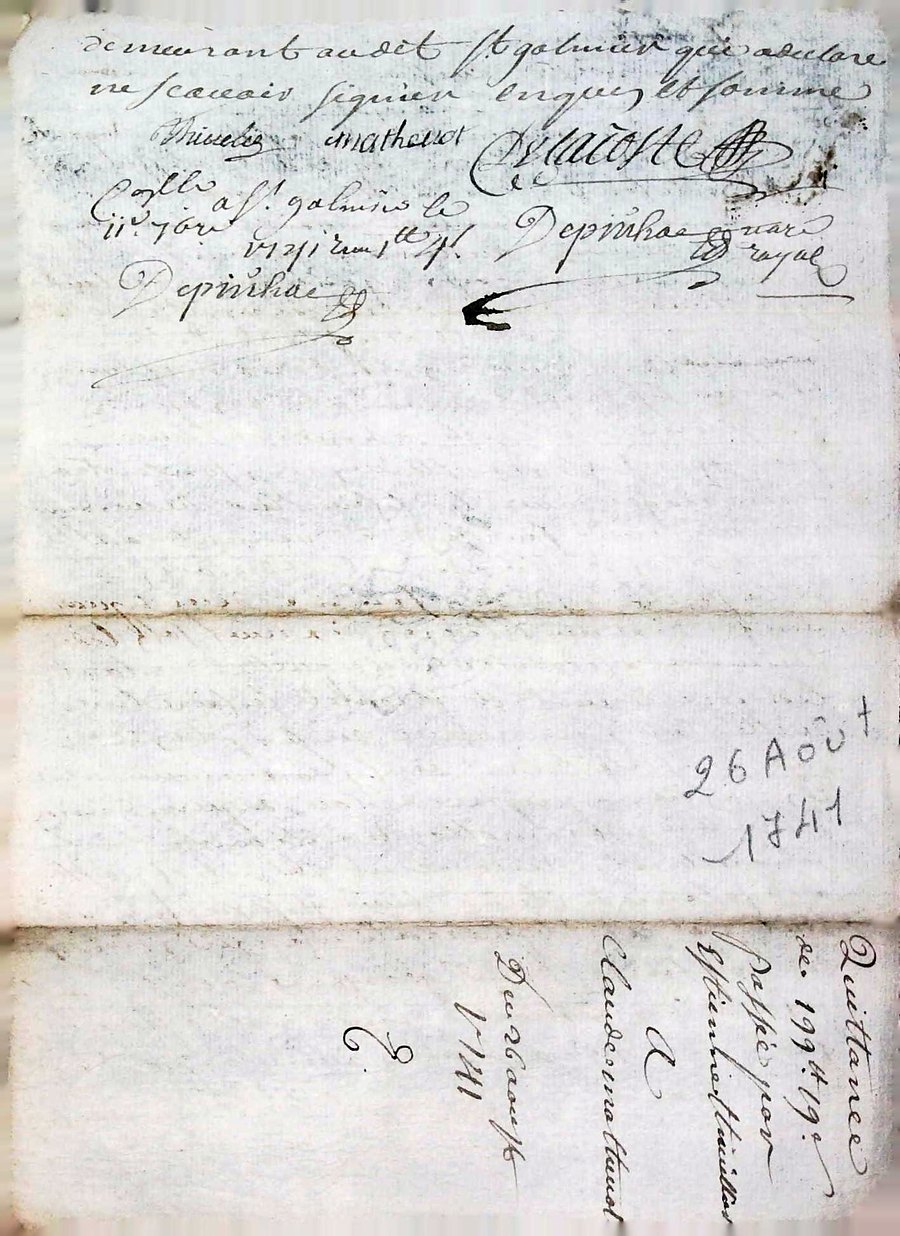 demeurant audit St galmier qui a declare
ne scavoir signer enquis et somme
mathevot Delacoste
Coлlle a St. galmier le
ii.e 7bre 1741 1tt 4s.
Depinhac nore
royal
Depinhac
26 Aôut
1741
Quittance
de 199tt 19s
passée par
Estienne
A
Claude mathevot
Du 26 aoust
1741
C.